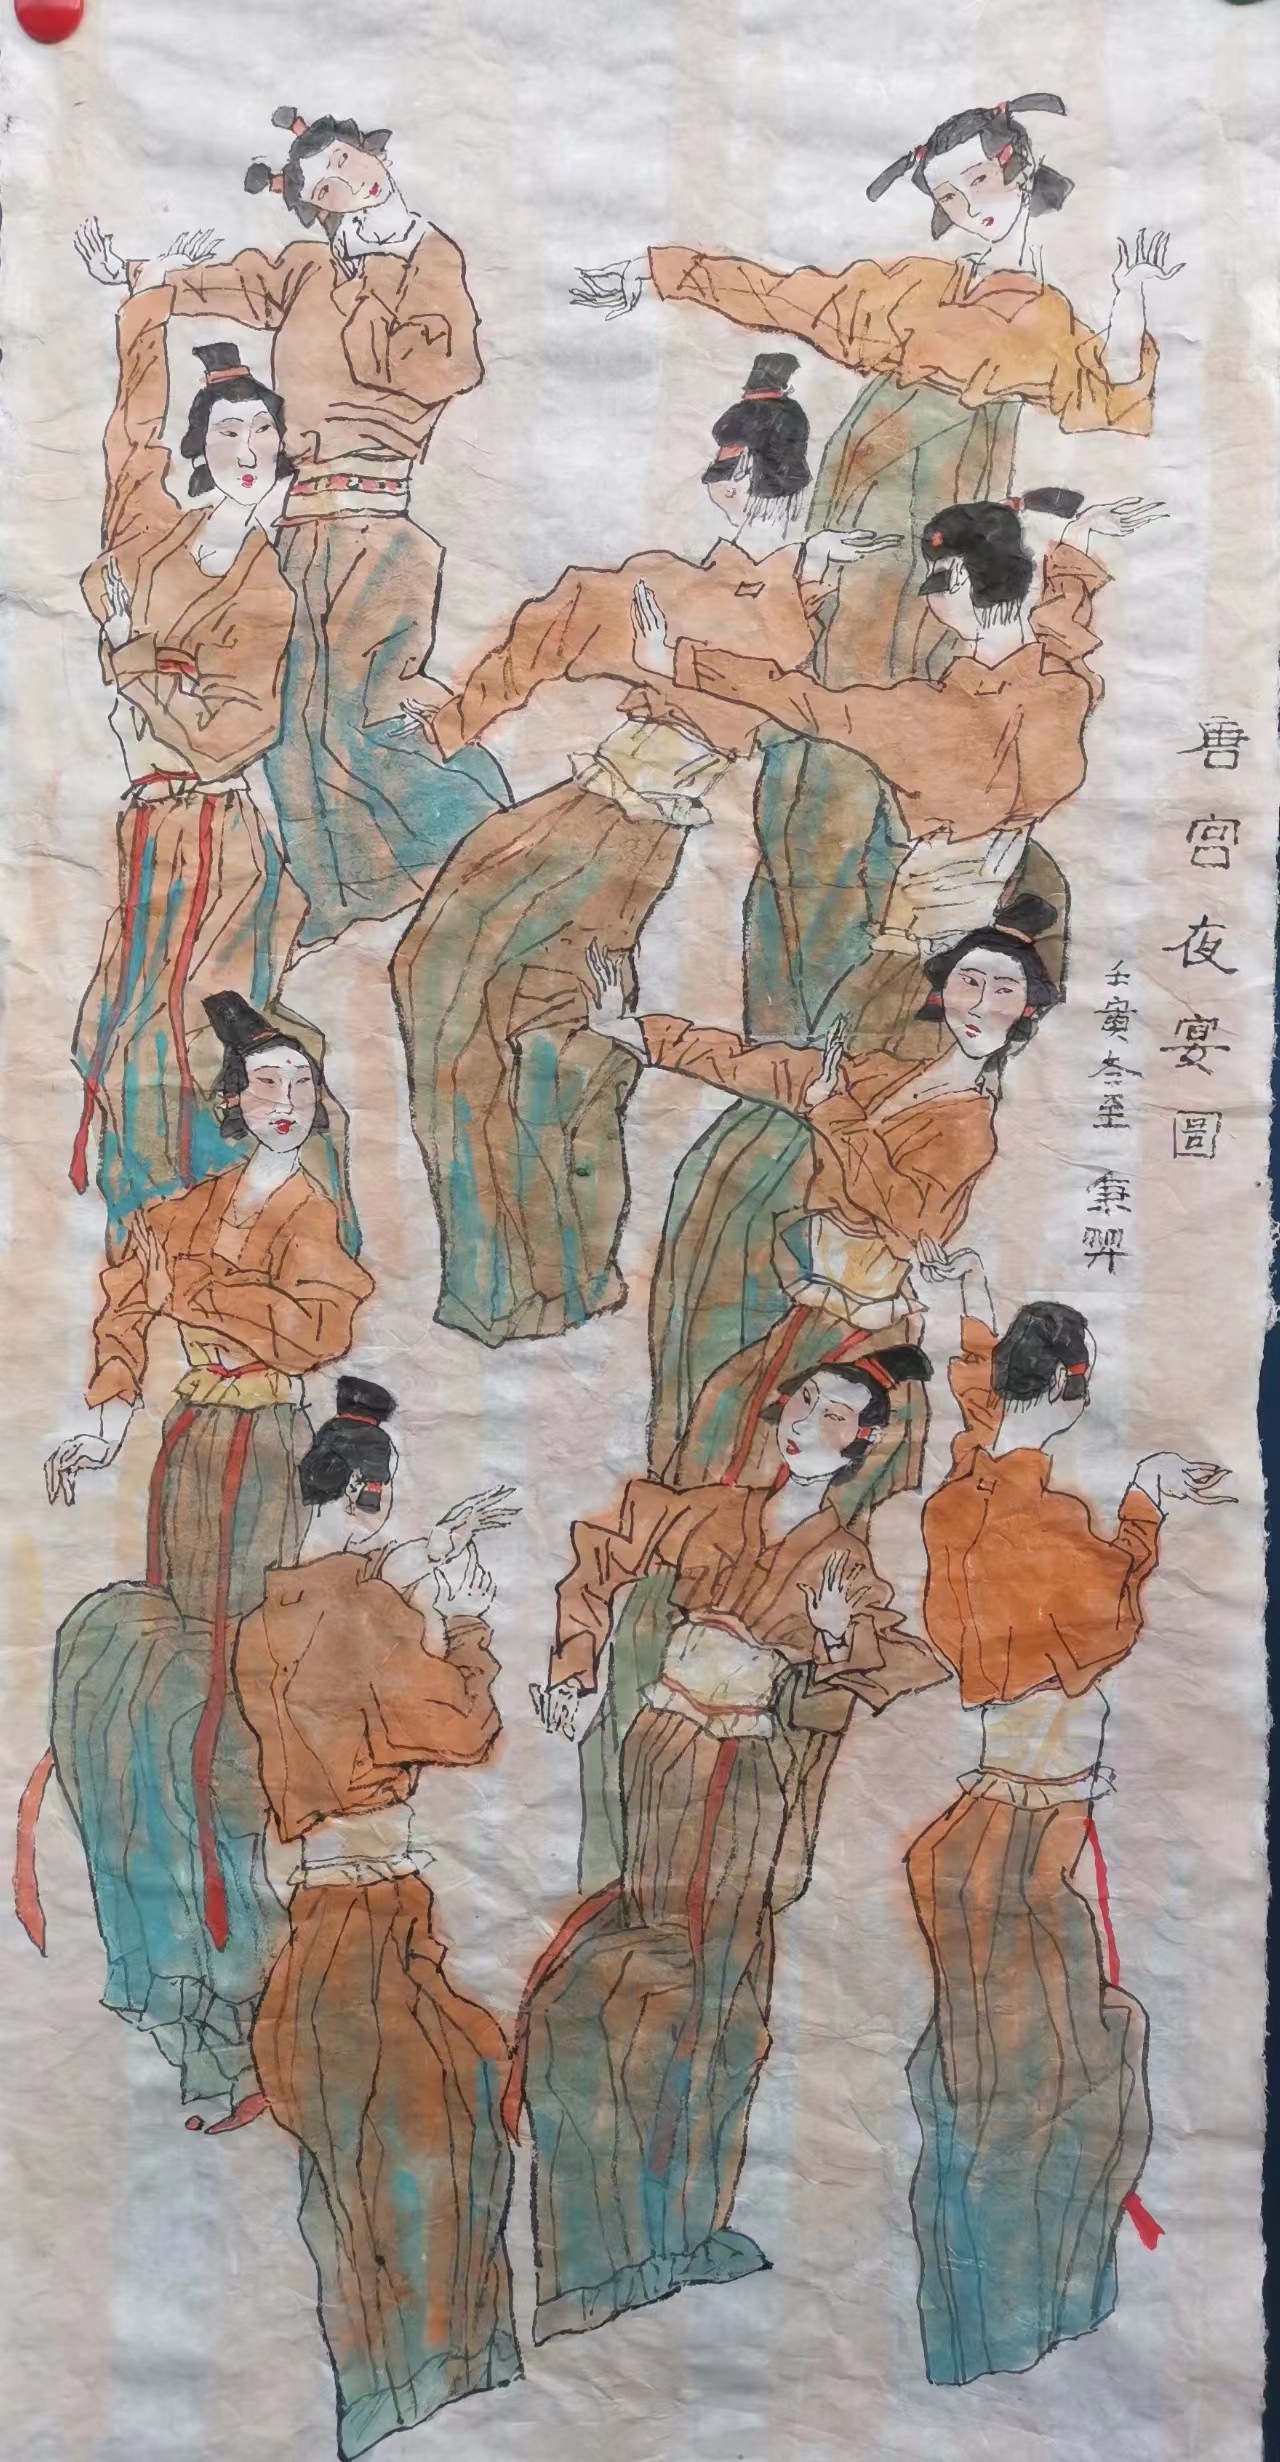 唐宫夜宴圖
壬寅冬至 羿